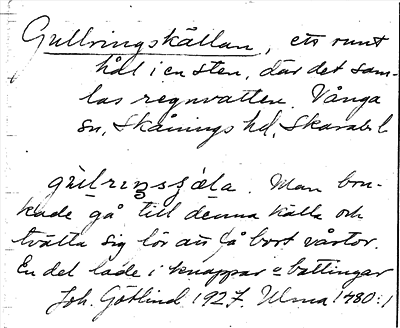 Gullringskällan, ett runt
hål i en sten, där det sam-
las regnvatten. Vånga
sn, Skånings hd, Skarab. l
gulringsʃæla. Man bru-
kade gå till denna källa och
tvätta sig för att få bort vårtor.
En del lade i knappar o bättingar
Joh. Götlind 1927. Ulma 1480:1